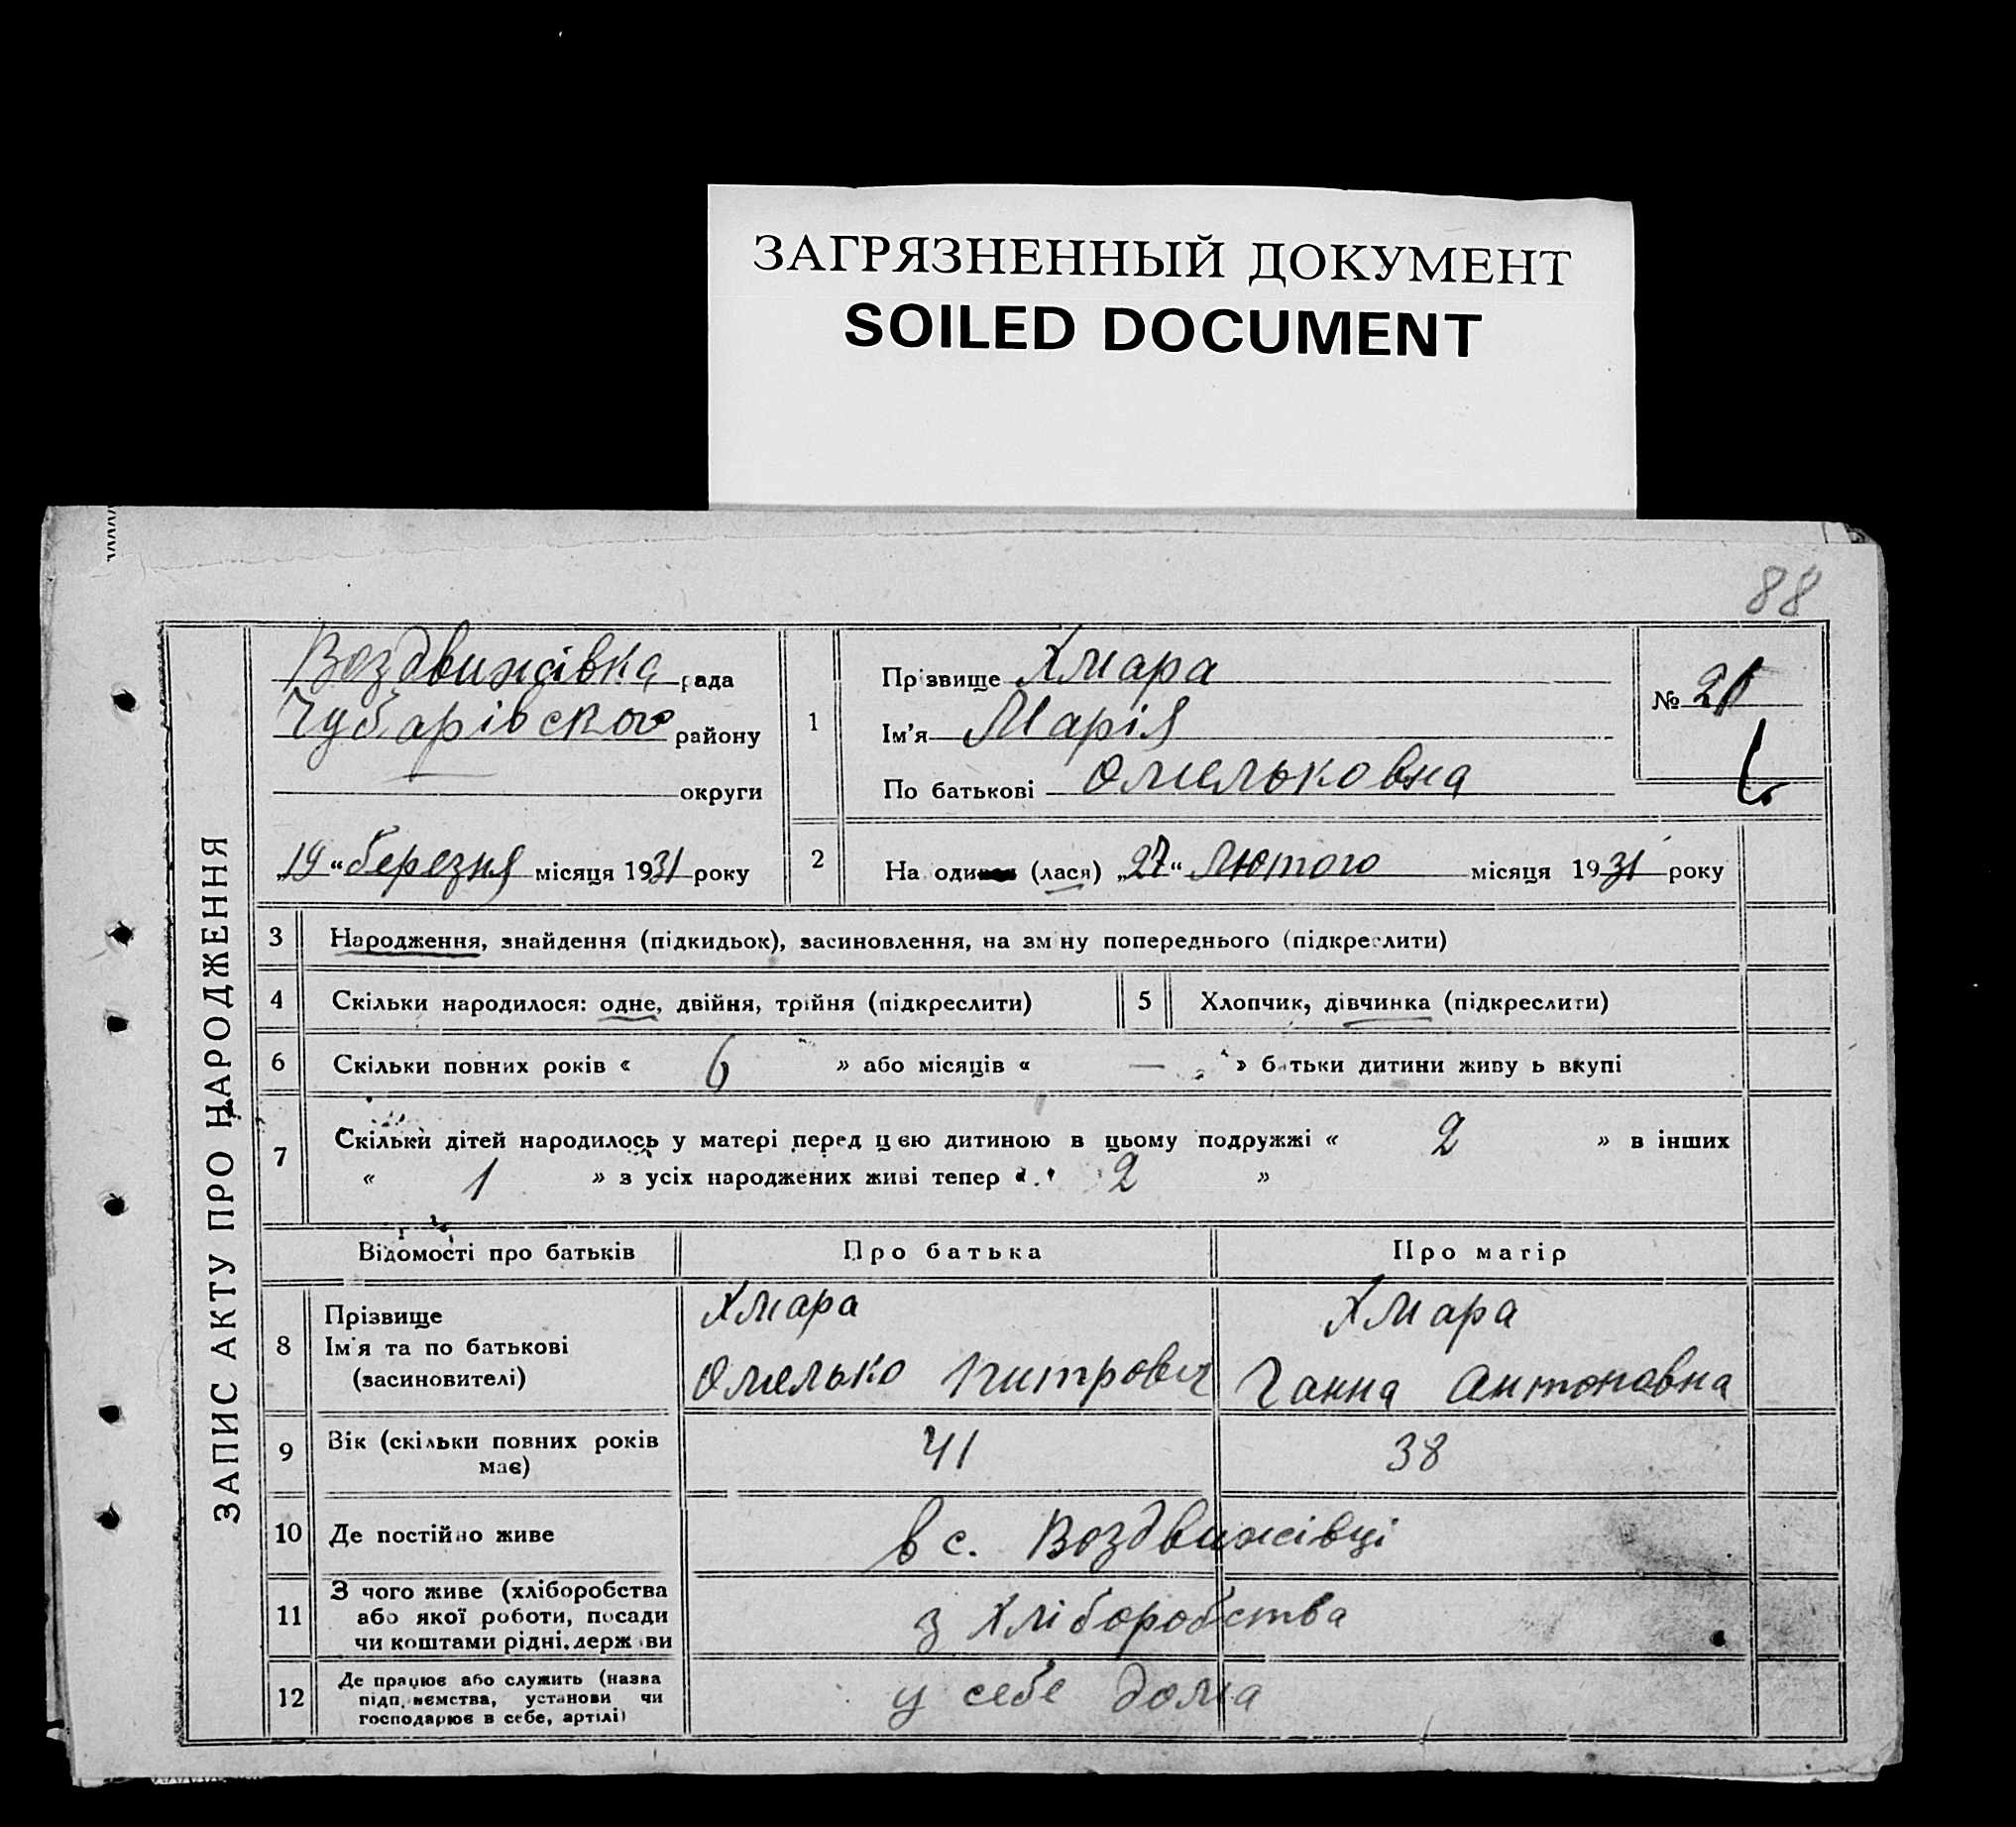 ЗАГРЯЗНЕННЫЙ ДОКУМЕНТ
SOILED DOCUMENT
88
ЗАПИС АКТУ ПРО НАРОДЖЕННЯ
Воздвижівка рада
Чубарівского району
округи
„19“ березня місяця 1931 року
1
Прізвище Хмара
Ім'я Марія
По батькові Омельковна
№
2
На один (лася) „27“ Лютого місяця 1931 року
3 Народження, знайдення (підкидьок), засиновлення, на зміну попереднього (підкреслити)
4 Скільки народилося: одне, двійня, трійня (підкреслити)
5 Хлопчик, дівчинка (підкреслити)
6 Скільки повних років « 6 » або місяців « — » батьки дитини живу ь вкупі
7 Скільки дітей народилось у матері перед цєю дитиною в цьому подружжі « 2 » в інших
« 1 » з усіх народжених живі тепер « 2 »
Відомості про батьків Про батька Про матір
8 Прізвище
Ім'я та по батькові
(засиновителі)
Хмара
Омелько Питрович
Хмара
Ганна Антоновна
9 Вік (скільки повних років
має)
41 38
10 Де постійно живе в с. Воздвижівці
11 З чого живе (хліборобства
або якої роботи, посади
чи коштами рідні, держави
з хліборобства
12 Де працює або служить (назва
підпиємства, установи чи
господарює в себе, артілі)
у себе дома